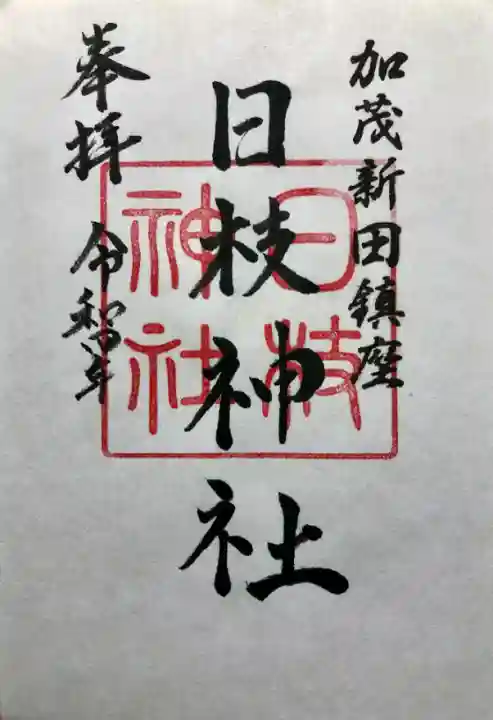 加茂新田鎮座
日枝神社
奉拝 令和四年
日枝
神社